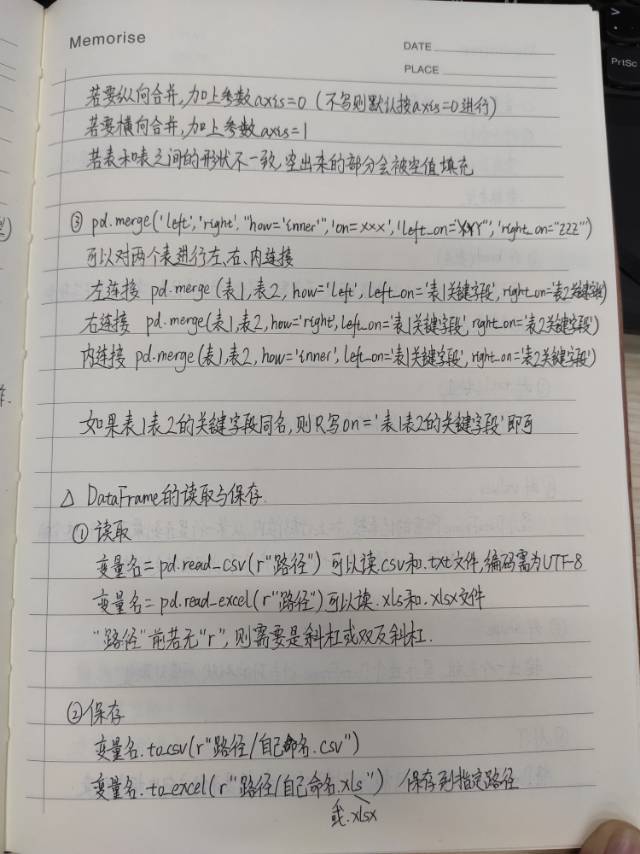 PrtSc
Memorise
DATE
PLACE
若要纵向合并,加上参数axis=0 (不写则默认按axis=0进行)
若要横向合并,加上参数axis=1
若表和表之间的形状不一致,空出来的部分会被空值填充
③ pd.merge('left','right',"how='inner'",'on=xxx','left_on="YYY"','right_on="ZZZ"')
可以对两个表进行左、右、内连接
左连接 pd.merge(表1,表2,how='left',left_on='表1关键字段',right_on='表2关键字段')
右连接 pd.merge(表1,表2,how='right',left_on='表1关键字段',right_on='表2关键字段')
内连接 pd.merge(表1,表2,how='inner',left_on='表1关键字段',right_on='表2关键字段')
如果表1表2的关键字段同名,则只写on='表1表2的关键字段'即可
△ DataFrame的读取与保存
① 读取
变量名=pd.read_csv(r"路径") 可以读.csv和.txt文件,编码需为UTF-8
变量名=pd.read_excel(r"路径")可以读.xls和.xlsx文件
"路径"前若无"r",则需要是斜杠或双反斜杠.
② 保存
变量名.to_csv(r"路径/自己命名.csv")
变量名.to_excel(r"路径/自己命名.xls") 保存到指定路径
或.xlsx